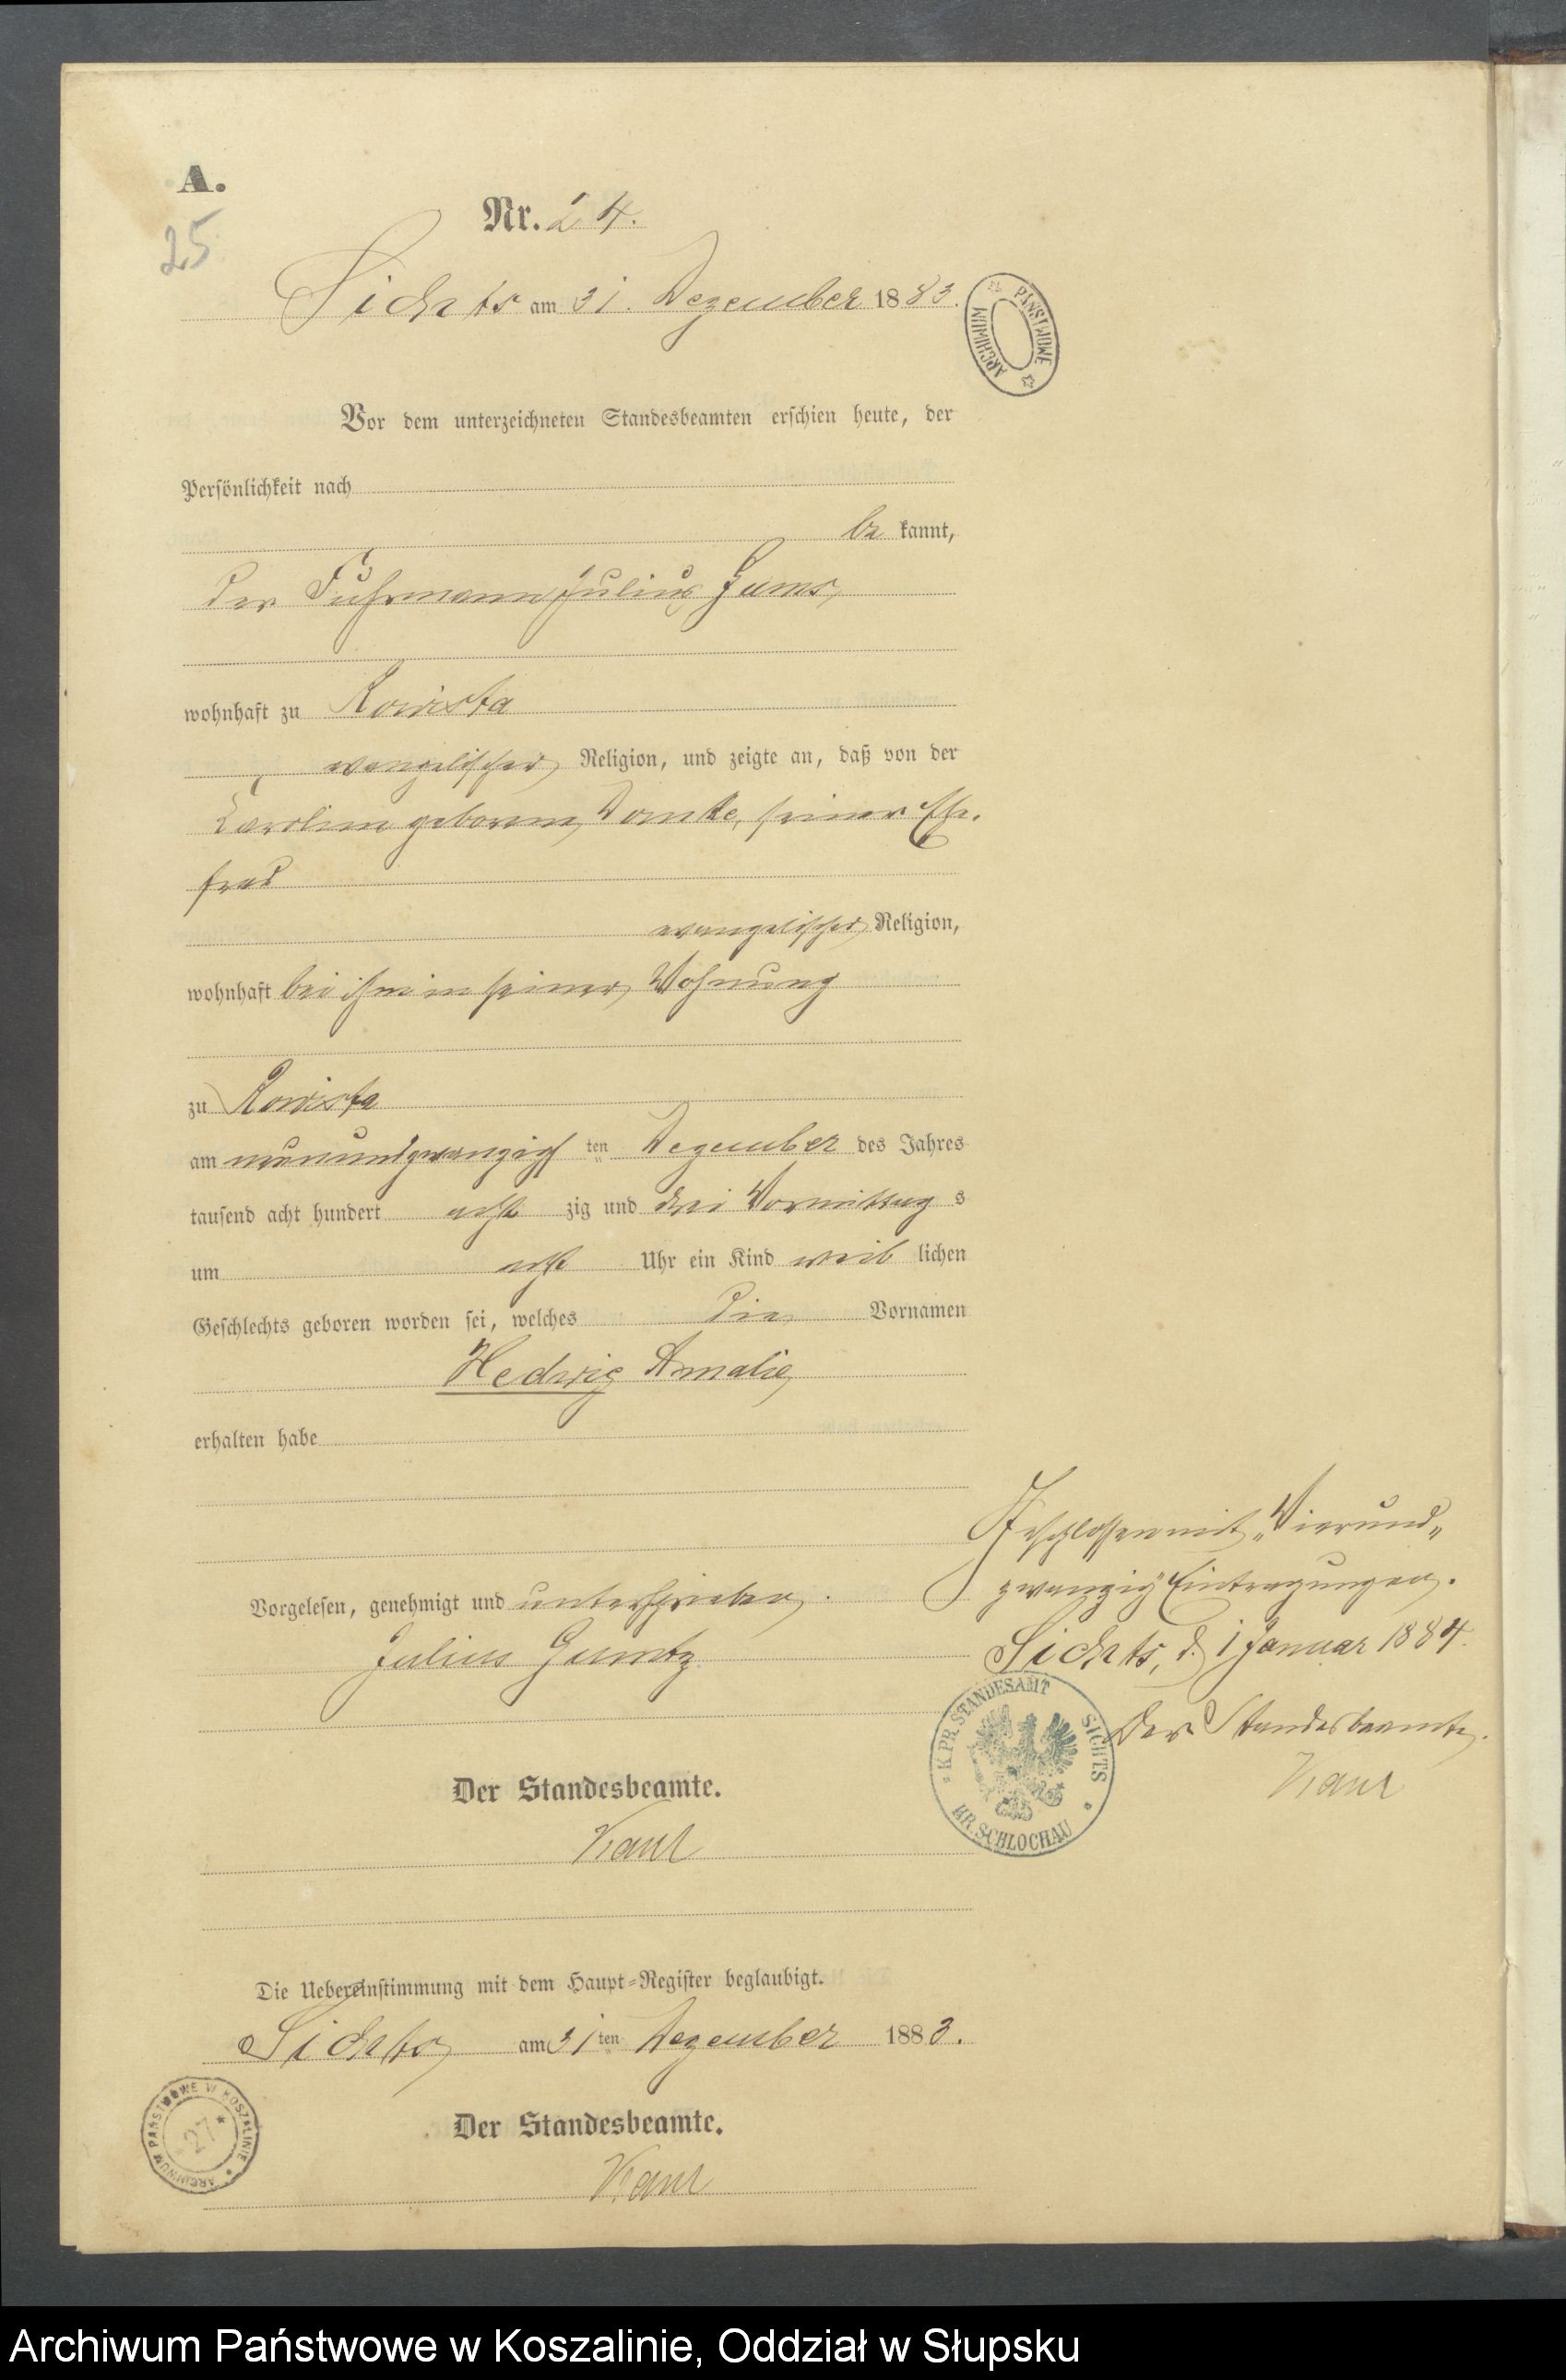 A.
25
Nr. 24.
Sichts am 31. Dezember 1883.
ARCHIWUM PAŃSTWOWE
Vor dem unterzeichneten Standesbeamten erschien heute, der
Persönlichkeit nach
be kannt,
der Fuhrmann Julius
wohnhaft zu
evangelischer Religion, und zeigte an, daß von der
geborene seiner Ehe-
frau
evangelischer Religion,
wohnhaft bei ihm in seiner Wohnung
zu
am neunundzwanzig ten Dezember des Jahres
tausend acht hundert acht zig und drei Vormittag s
um acht Uhr ein Kind weib lichen
Geschlechts geboren worden sei, welches die Vornamen
Hedwig Amalie
erhalten habe
Geschlossen mit „Vierund-
zwanzig" Eintragungen.
Sichts, d. 1 Januar 1884.
Der Standesbeamte.
Vorgelesen, genehmigt und unterschrieben.
Julius
K. PR. STANDESAMT SICHTS
KR. SCHLOCHAU
Der Standesbeamte.
Die Uebereinstimmung mit dem Haupt-Register beglaubigt.
Sichts am 31 ten Dezember 1883.
Der Standesbeamte.
ARCHIWUM PAŃSTWOWE W KOSZALINIE
27
Archiwum Państwowe w Koszalinie, Oddział w Słupsku